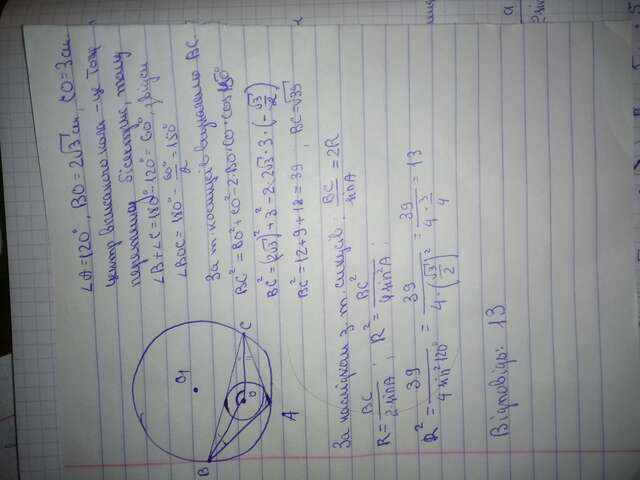 ∠A=120°, BO=2√3 см, CO=3см
центр вписаного кола – це точка
перетину бісектрис, тому
∠B+∠C=180°-120°=60°, звідси
∠BOC=180°-60°/2=150°
За т. косинусів визначаємо BC
BC²=BO²+CO²-2·BO·CO·cos150°
BC²=(2√3)²+3²-2·2√3·3·(-√3/2)
BC²=12+9+18=39, BC=√39
O₁
B
O
C
A
За наслідком з т. синусів. BC/sinA=2R
R=BC/2sinA; R²=BC²/4sin²A;
R²=39/4sin²120°=39/4·(√3/2)²=39/4·3/4=13
Відповідь: 13